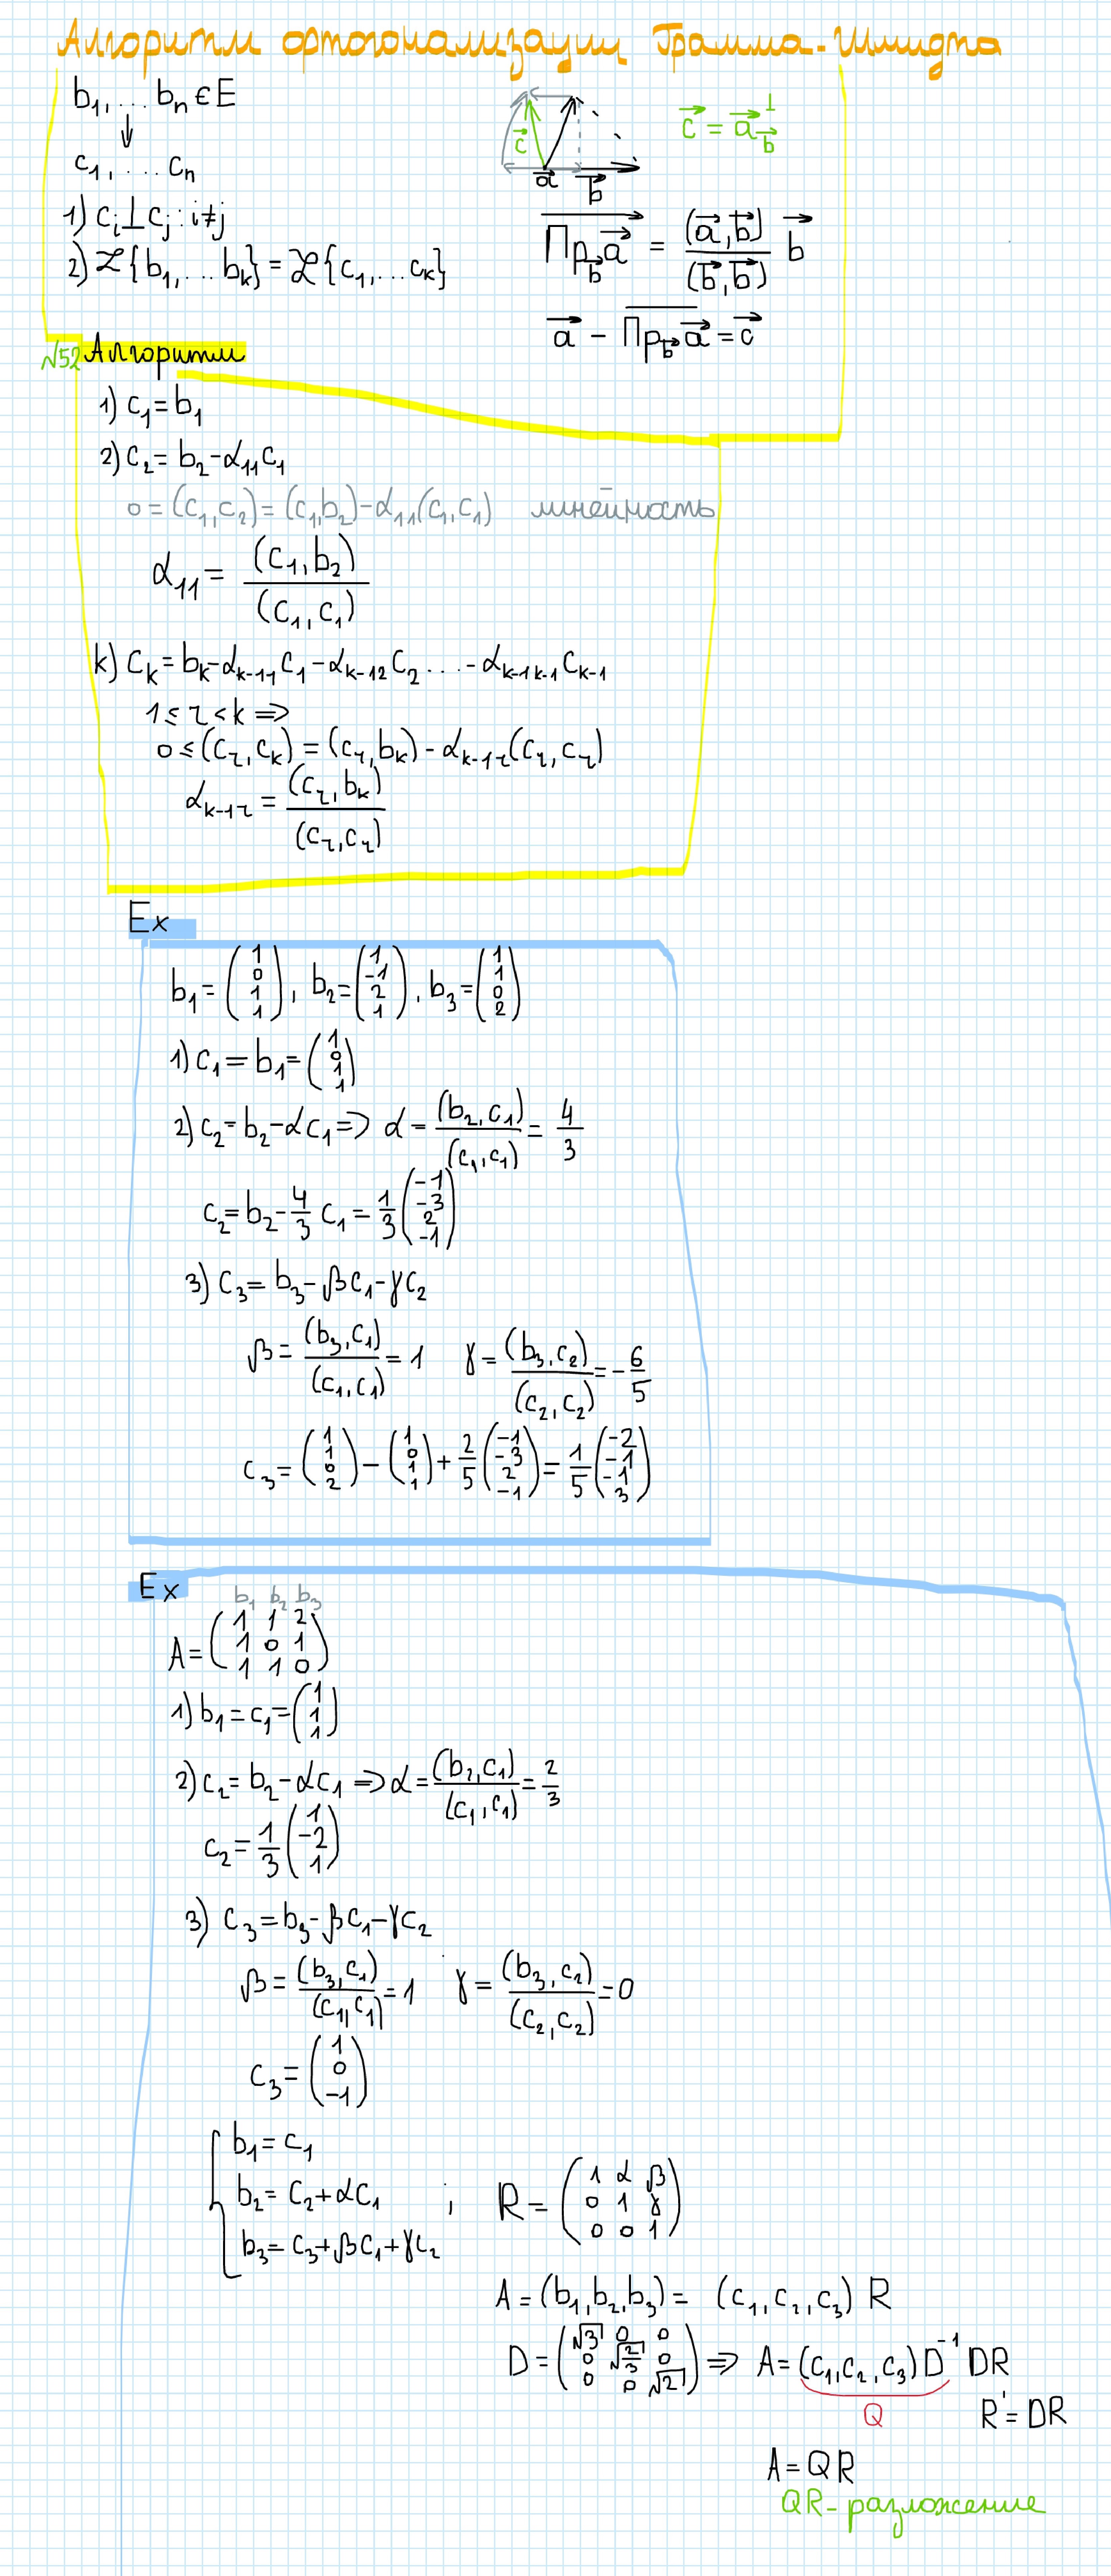 Алгоритм ортогонализации Грамма-Шмидта
b₁, ... bₙ ∈ E
↓
c₁, ... cₙ
1) cᵢ ⊥ cⱼ : i ≠ j
2) ℒ{b₁, ... bₖ} = ℒ{c₁, ... cₖ}
c⃗ a⃗ b⃗
c⃗ = a⃗_b⃗^⊥
Пр_b⃗ a⃗ = (a⃗, b⃗) / (b⃗, b⃗) b⃗
a⃗ - Пр_b⃗ a⃗ = c⃗
№52 Алгоритм
1) c₁ = b₁
2) c₂ = b₂ - α₁₁c₁
0 = (c₁, c₂) = (c₁, b₂) - α₁₁(c₁, c₁) линейность
α₁₁ = (c₁, b₂) / (c₁, c₁)
k) cₖ = bₖ - α_{k-1 1} c₁ - α_{k-1 2} c₂ ... - α_{k-1 k-1} c_{k-1}
1 ≤ r < k ⇒
0 ≤ (c_r, c_k) = (c_r, b_k) - α_{k-1 r}(c_r, c_r)
α_{k-1 r} = (c_r, b_k) / (c_r, c_r)
Ex
b₁ = (1 0 1 1), b₂ = (1 -1 2 1), b₃ = (1 1 0 2)
1) c₁ = b₁ = (1 0 1 1)
2) c₂ = b₂ - αc₁ ⇒ α = (b₂, c₁) / (c₁, c₁) = 4/3
c₂ = b₂ - 4/3 c₁ = 1/3 (-1 -3 2 -1)
3) c₃ = b₃ - βc₁ - γc₂
β = (b₃, c₁) / (c₁, c₁) = 1 γ = (b₃, c₂) / (c₂, c₂) = -6/5
c₃ = (1 1 0 2) - (1 0 1 1) + 2/5 (-1 -3 2 -1) = 1/5 (-2 -1 -1 3)
Ex
b₁ b₂ b₃
A = (1 1 2
1 0 1
1 1 0)
1) b₁ = c₁ = (1 1 1)
2) c₂ = b₂ - αc₁ ⇒ α = (b₂, c₁) / (c₁, c₁) = 2/3
c₂ = 1/3 (1 -2 1)
3) c₃ = b₃ - βc₁ - γc₂
β = (b₃, c₁) / (c₁, c₁) = 1 γ = (b₃, c₂) / (c₂, c₂) = 0
c₃ = (1 0 -1)
{ b₁ = c₁
b₂ = c₂ + αc₁ ;
b₃ = c₃ + βc₁ + γc₂
R = (1 α β
0 1 γ
0 0 1)
A = (b₁, b₂, b₃) = (c₁, c₂, c₃) R
D = (√3 0 0
0 √(2/3) 0
0 0 √2) ⇒ A = (c₁, c₂, c₃) D⁻¹ DR
Q R' = DR
A = QR
QR-разложение